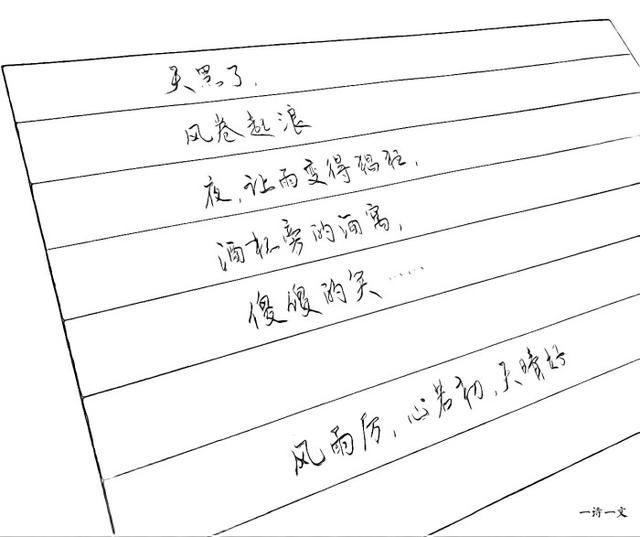 天黑了，
风卷起浪
夜，让雨变得猖狂，
酒杯旁的酒窝，
傻傻的笑……
风雨历，心若初，天晴好
一诗一文